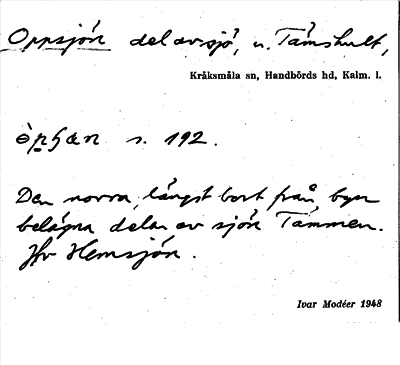 Oppsjön del av sjö, u. Tåmshult,
Kråksmåla sn, Handbörds hd, Kalm. l.
s. 192.
Den norra, längst bort från byn
belägna delen av sjön Tåmmen.
Jfr Hemsjön.
Ivar Modéer 1948